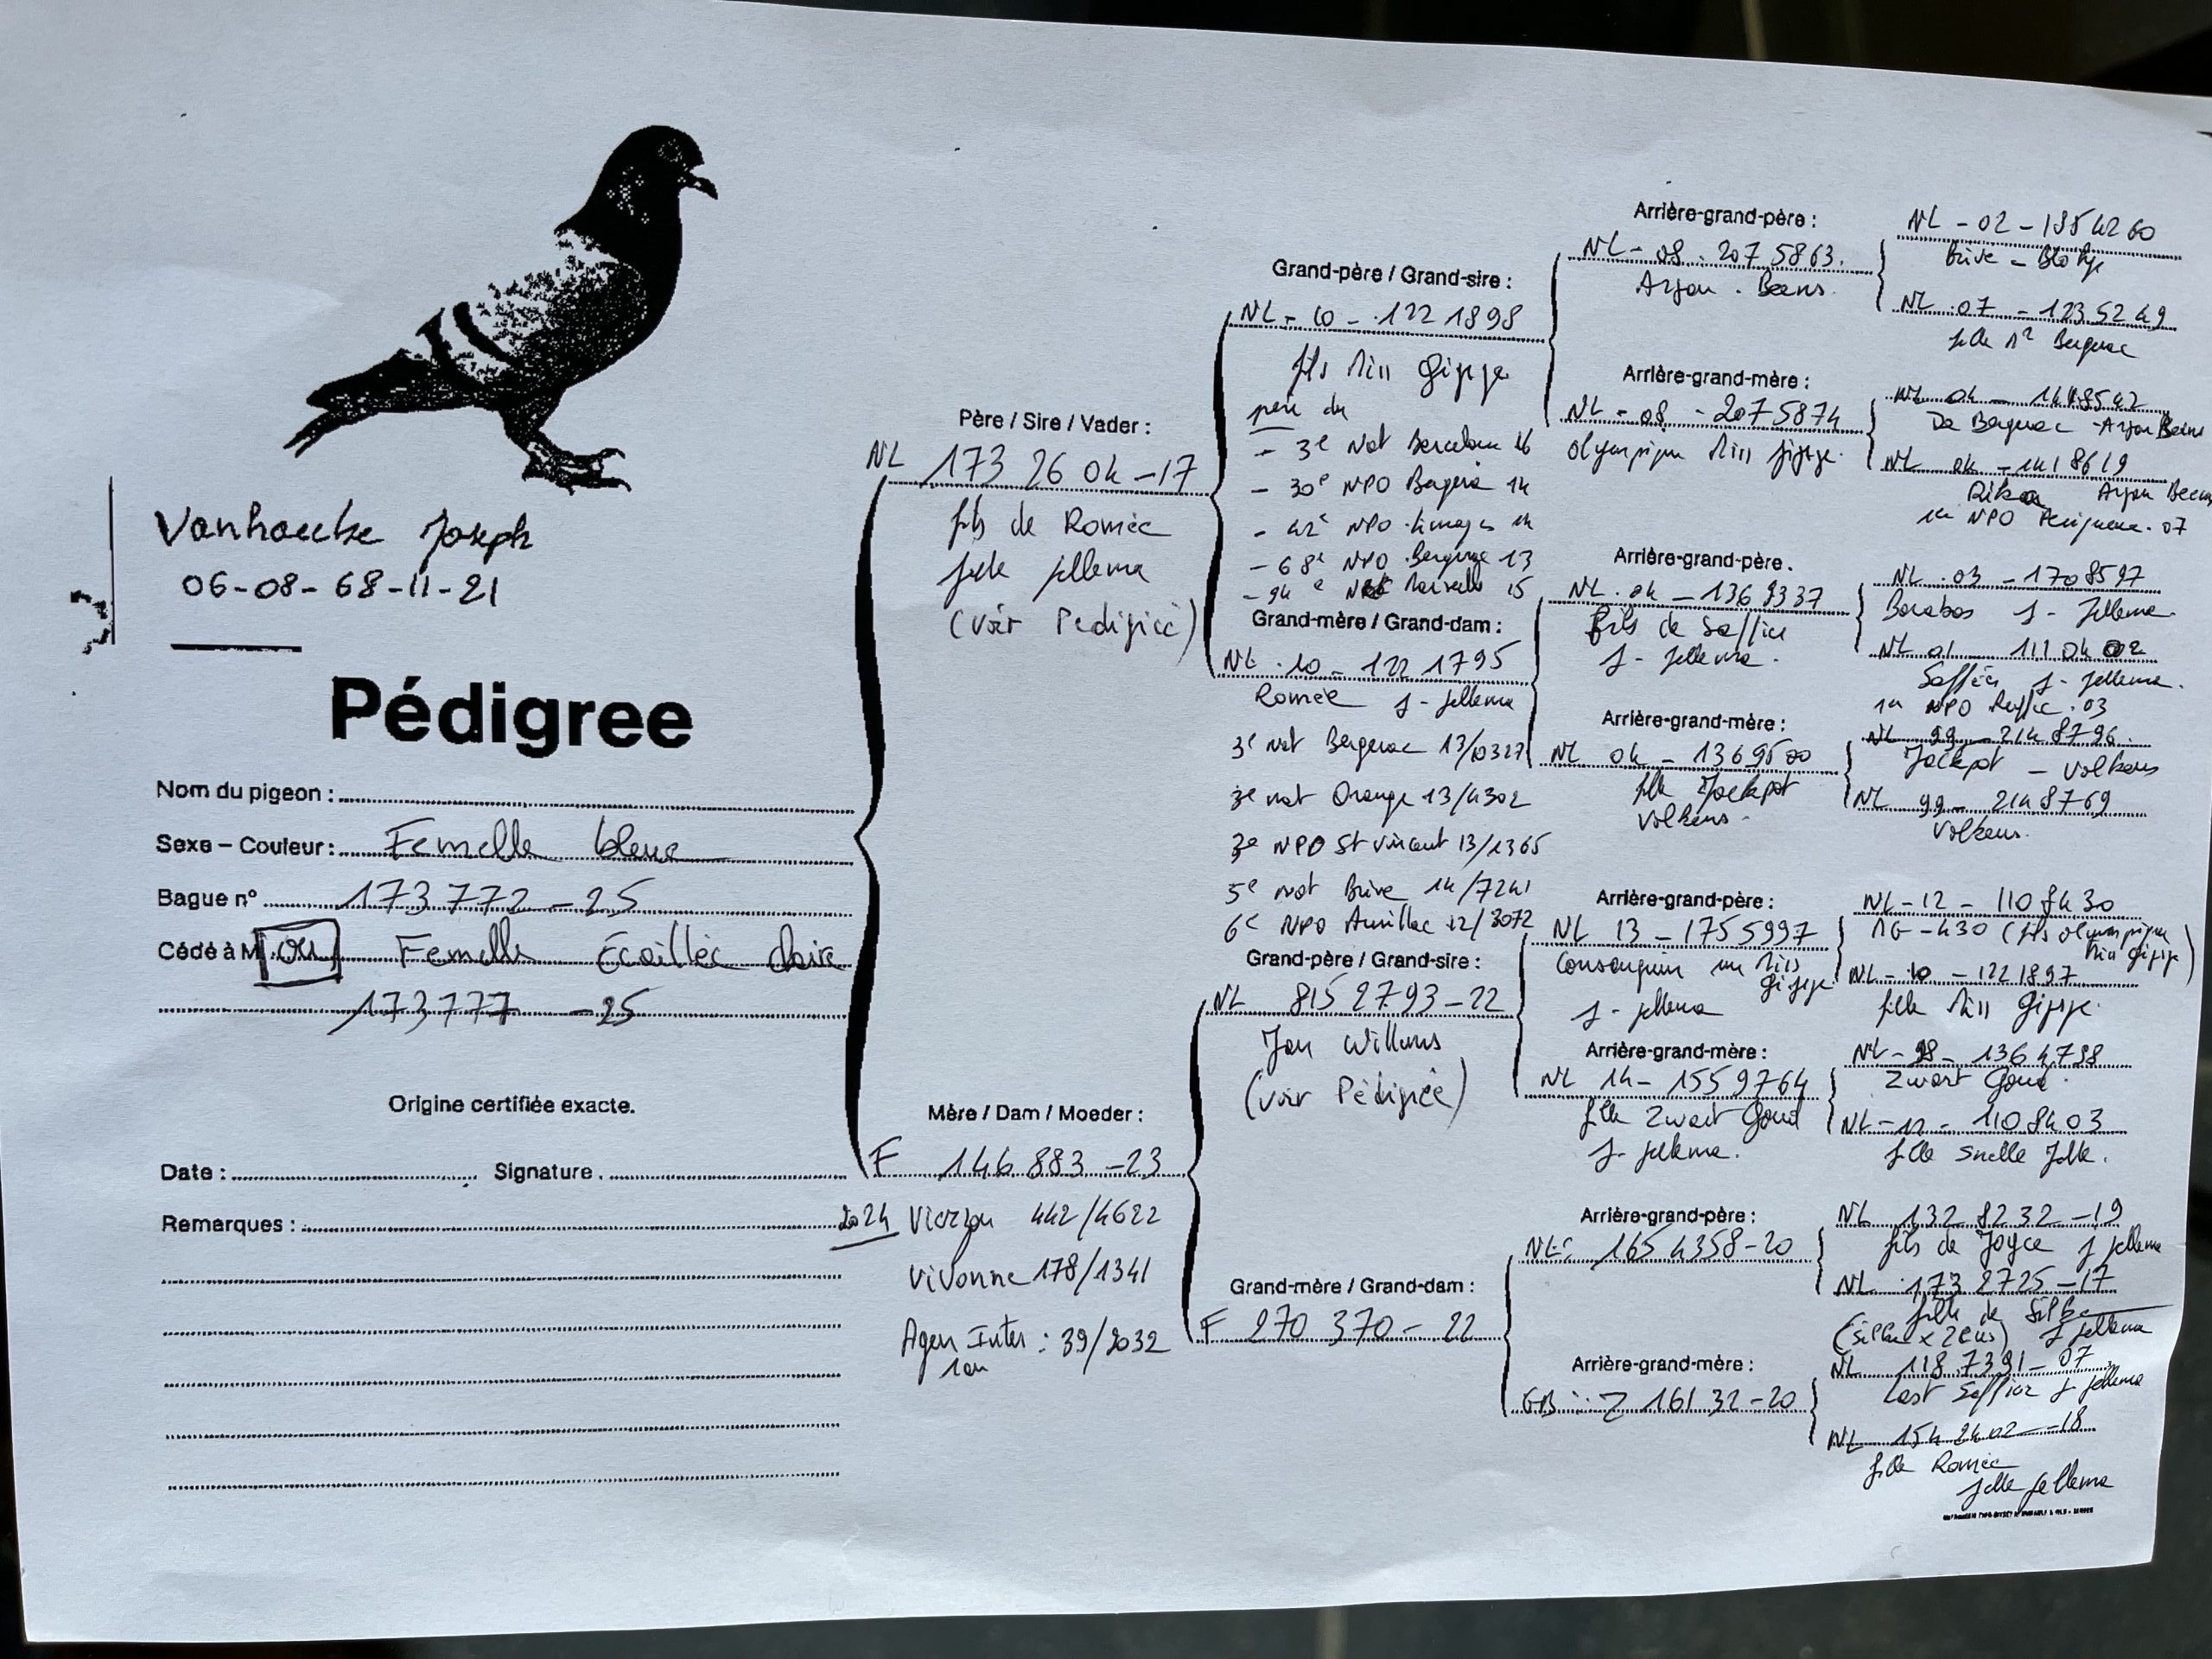 Vanhoecke Joseph
06-08-68-11-21
Pédigree
Nom du pigeon :
Sexe – Couleur : Femelle bleue
Bague n° 173 772 - 25
Cédé à M ou Femelle Écaillée claire
173777 - 25
Origine certifiée exacte.
Date : Signature .
Remarques :
Père / Sire / Vader :
NL 173 26 04 - 17
fils de Romée
jelle jellema
(voir Pedigrée)
Mère / Dam / Moeder :
F 146 883 - 23
2024 Vierzon 442/4622
Vivonne 178/1341
Agen Inter : 39/2032
1an
Grand-père / Grand-sire :
NL - 10 - 122 1898
fils Miss Gijsje
père du
- 3e Nat Barcelone 16
- 30e NPO Bergerac 14
- 42e NPO Limoges 14
- 68e NPO Bergerac 13
- 94e 15
Grand-mère / Grand-dam :
NL - 10 - 122 1795
Romée J - Jellema
3e nat Bergerac 13/10327
3e nat Orange 13/4302
3e NPO St Vincent 13/1365
5e nat Brive 14/7241
6e NPO Aurillac 12/3072
Grand-père / Grand-sire :
NL 815 2793 - 22
Jan Willems
(voir Pédigrée)
Grand-mère / Grand-dam :
F 270 370 - 22
Arrière-grand-père :
NL - 08 - 207 5863
Arjan - Beens
Arrière-grand-mère :
NL - 08 - 207 5874
olympique Miss Gijsje
Arrière-grand-père .
NL - 04 - 136 9337
fils de Saffier
J - Jellema
Arrière-grand-mère :
NL 04 - 1369500
fille Jackpot
Volkens
Arrière-grand-père :
NL 13 - 1755997
Consanguin sur Miss Gijsje
J - Jellema
Arrière-grand-mère :
NL 14 - 1559764
fille Zwart Goud
J - Jellema.
Arrière-grand-père :
NL : 165 4358 - 20
Arrière-grand-mère :
GB : Z 161 32 - 20
NL - 02 - 1854260
Brive - Blokje
NL 07 - 1235249
fille Bergerac
NL 04 - 1418542
De Bergerac - Arjan Beens
NL 04 - 1418619
Rika Arjan Beens
1er NPO Perigueux - 07
NL 03 - 1708597
Barabas J - Jellema
NL 01 - 1110402
Saffier J - Jellema
1er NPO Ruffec 03
NL 99 - 2148796
Jackpot - Volkens
NL 99 - 2148769
Volkens
NL - 12 - 1108430
NG - 430 (fils olympique Miss Gijsje)
NL - 10 - 1221897
fille Miss Gijsje
NL - 98 - 1364798
Zwart Goud
NL - 12 - 1108403
fille Snelle Jelle.
NL 132 8232 - 19
fils de Joyce J Jellema
NL 173 2725 - 17
fille de Silke
(Silke x Zeus) J Jellema
NL 118 7391 - 07
Last Saffier J Jellema
NL 154 2402 - 18
fille Romée
Jelle Jellema